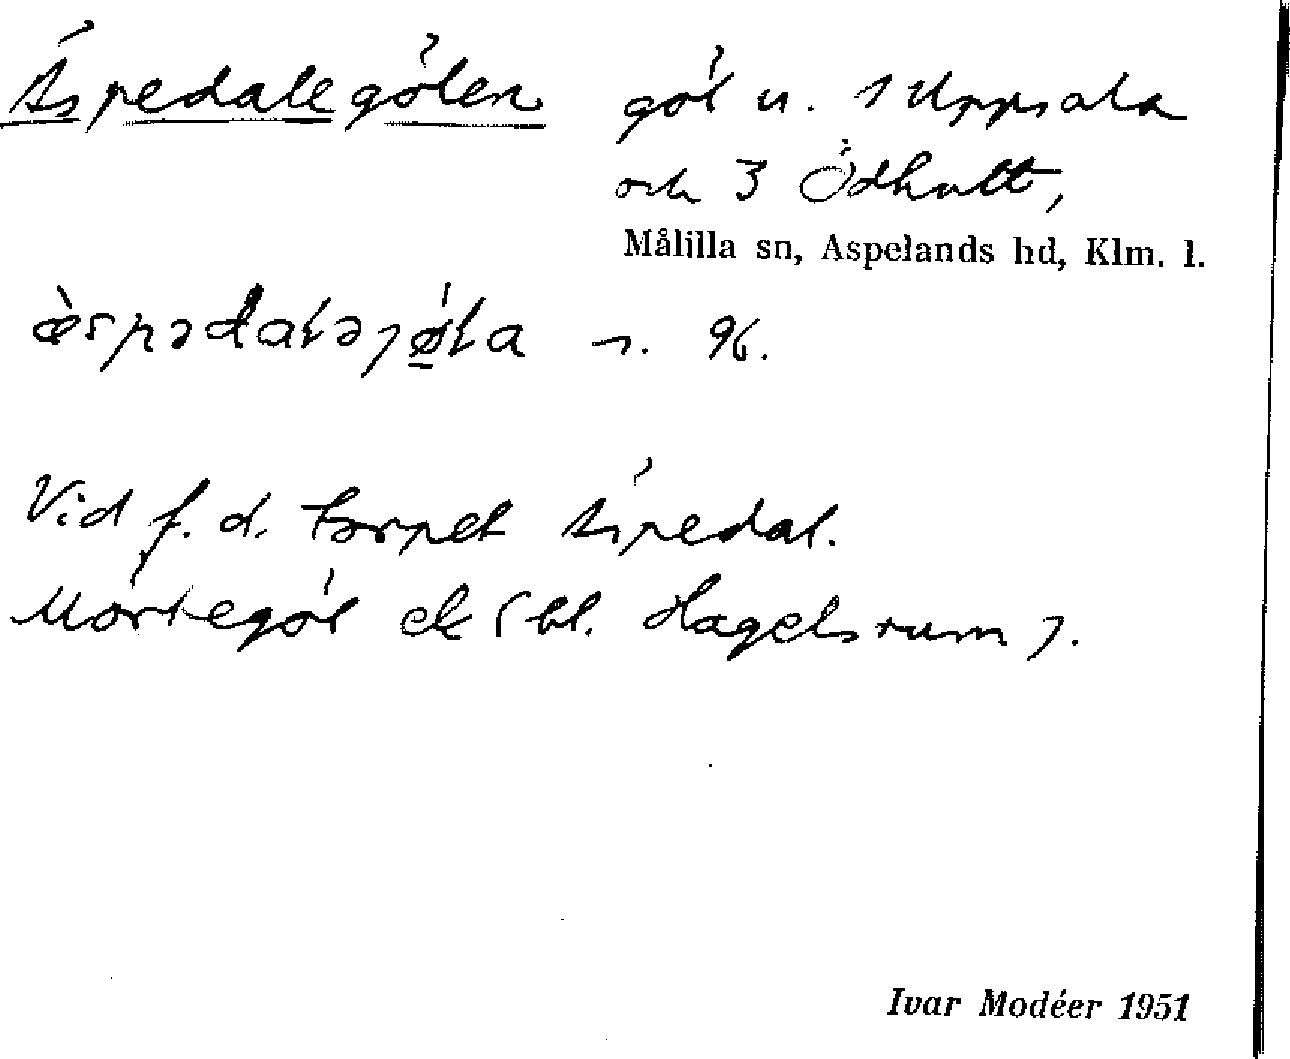 Äspedalegölen göl u. 1 Uppsala
och 3 Ödhult,
Målilla sn, Aspelands hd, Klm. l.
æ̀spədaɫəjǿ̲ɫa n. 96.
Vid f. d. torpet Äspedal.
Mörtegöl ek (bl. Hagelsrum).
Ivar Modéer 1951